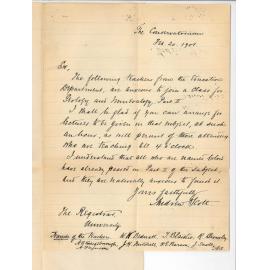 The Conservatorium
Feb. 20. 1901.
Sir,
The following teachers from the Education
Department, are anxious to join a class for
Geology and Mineralogy, Part II
I shall be glad if you can arrange for
lectures to be given in that subject, at such
an hour, as will permit of those attending
who are teaching till 4 o'clock.
I understand that all who are named below
have already passed in Part I of the subject,
and they are naturally anxious to finish it.
Yours faithfully
The Registrar
University
Names of the Teachers
J. H. Mitchell